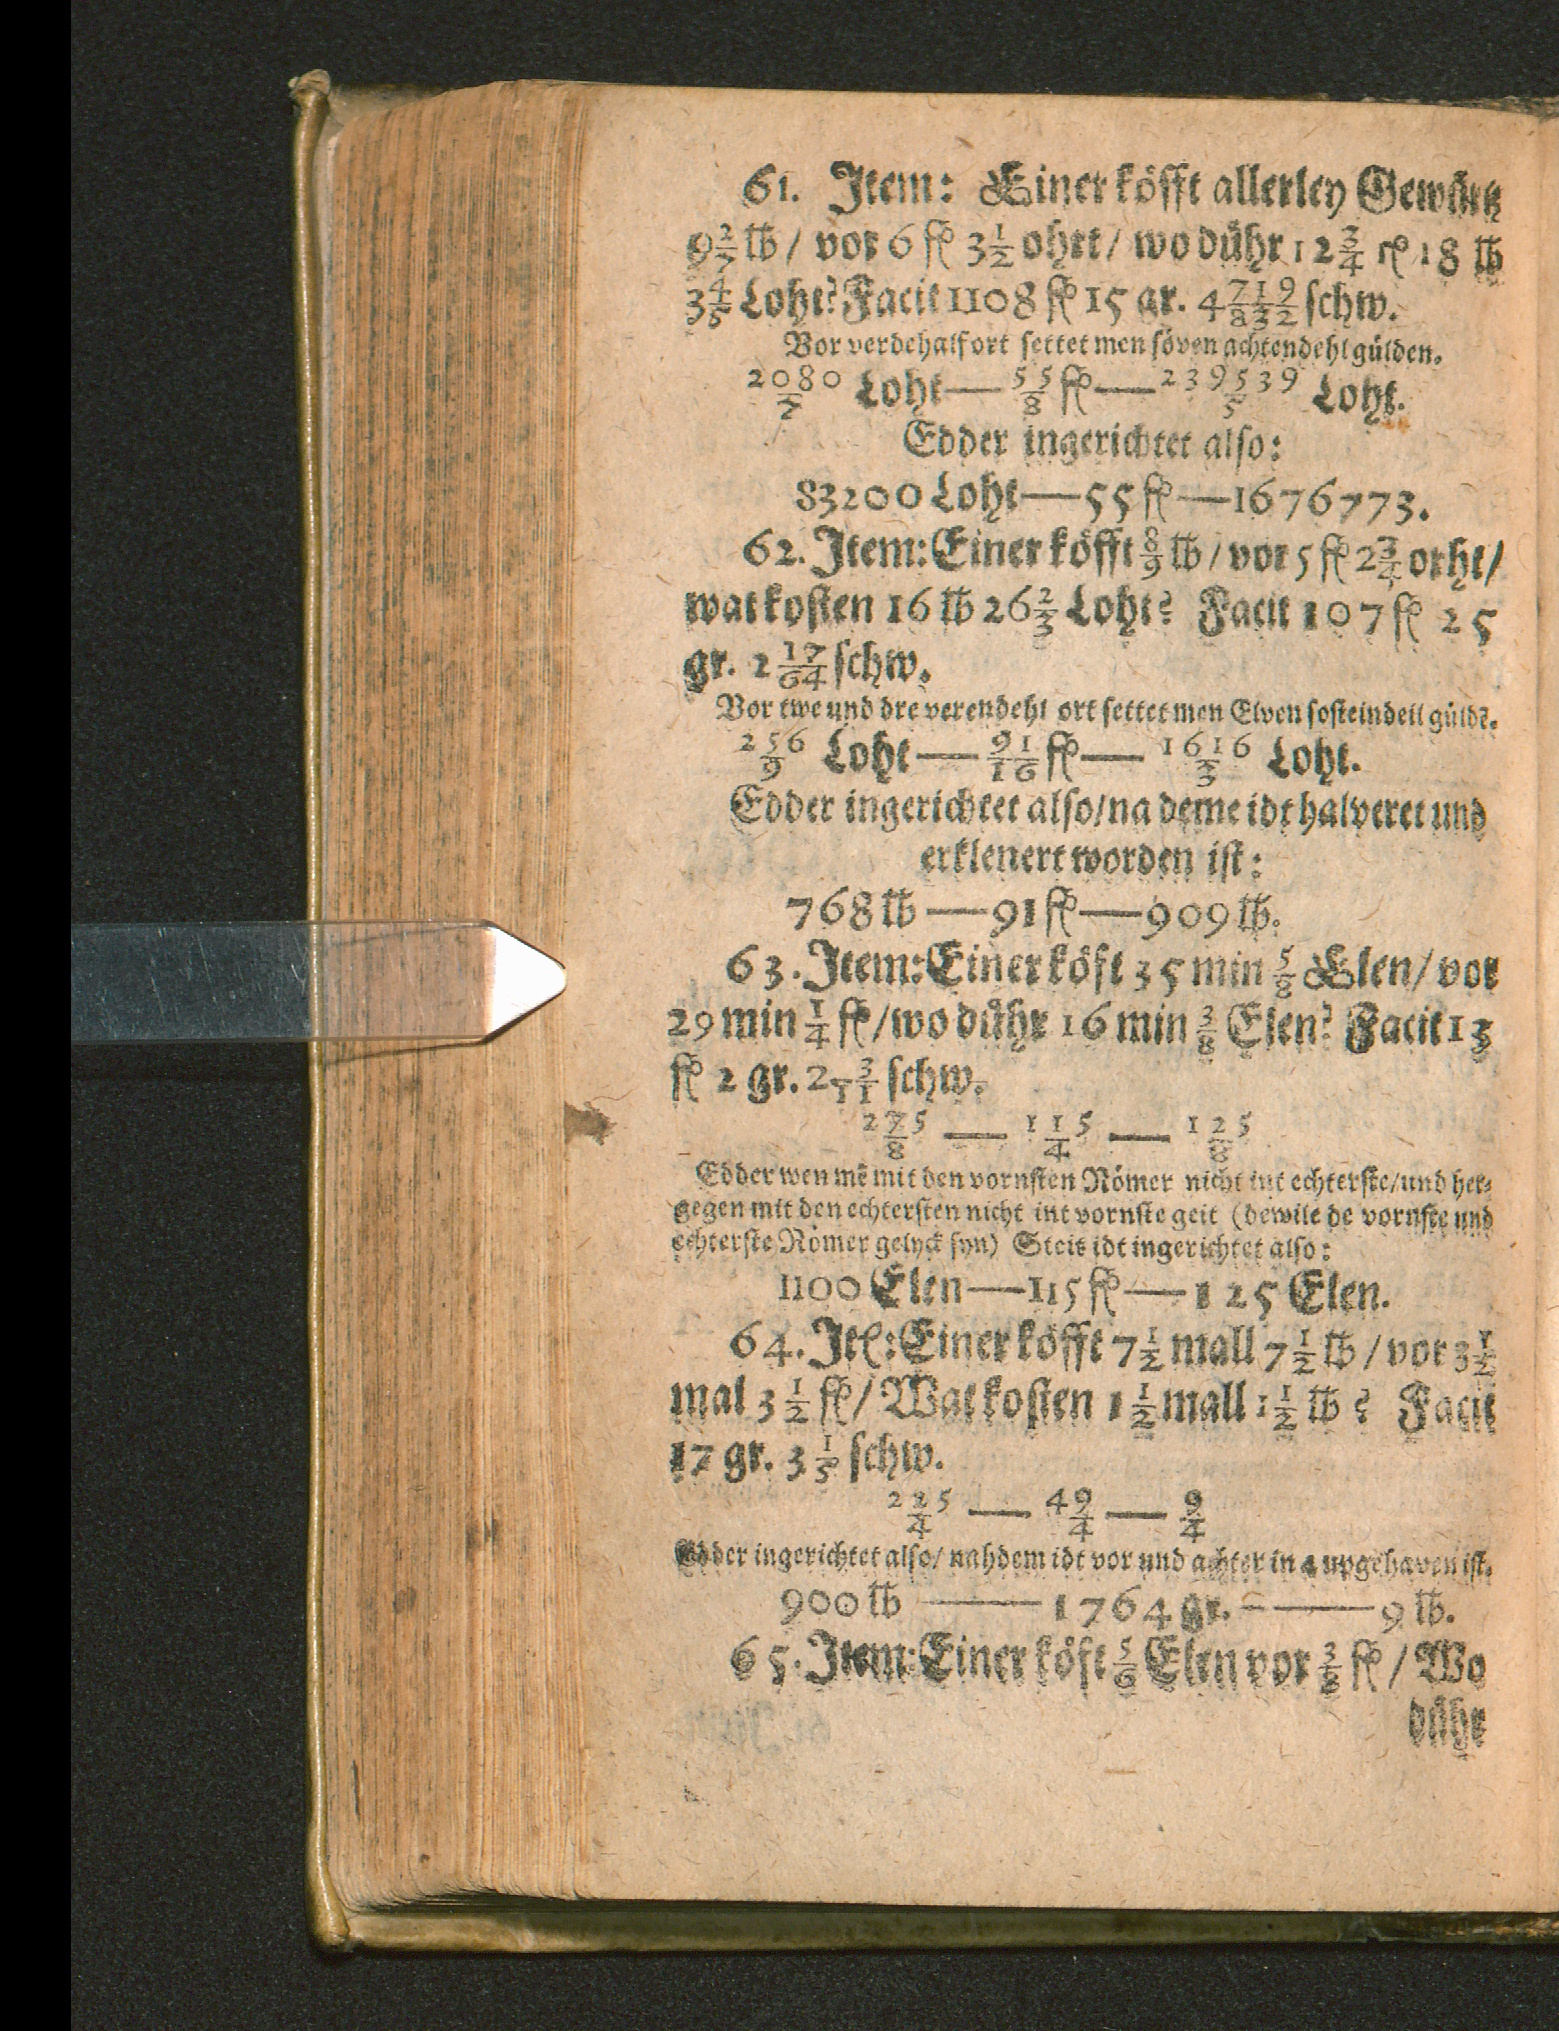 61. Item: Einer köfft allerley Gewürtz
9 2/7 lb / vor 6 fl 3 1/2 ohrt / wo dühr 12 3/4 rl 18 lb
3 4/5 Loht? Facit 1108 fl 15 gr. 4 719/832 schw.
Vor verdehalf ort settet men söven achtendehl gülden.
2080/7 Loht — 55/8 fl — 239539/5 Loht.
Edder ingerichtet also:
83200 Loht — 55 fl — 1676773.
62. Item: Einer köfft 8/9 lb / vor 5 fl 2 3/4 orht /
wat kosten 16 lb 26 2/3 Loht? Facit 107 fl 25
gr. 2 17/64 schw.
Vor twe und dre verendehl ort settet men Elven sosteindeil güld?.
256/9 Loht — 91/16 fl — 1616/3 Loht.
Edder ingerichtet also / na deme idt halveret und
erklenert worden ist:
768 lb — 91 fl — 909 lb.
63. Item: Einer köft 35 min 5/8 Elen / vor
29 min 1/4 fl / wo dühr 16 min 3/8 Elen? Facit 13
fl 2 gr. 2 3/11 schw.
275/8 — 115/4 — 125/8
Edder wen mē mit den vornsten Nömer nicht int echterste / und her-
gegen mit den echtersten nicht int vornste geit (dewile de vornste und
echterste Nömer gelyck syn) Steit idt ingerichtet also:
1100 Elen — 115 fl — 125 Elen.
64. Itē: Einer köfft 7 1/2 mall 7 1/2 lb / vor 3 1/2
mal 3 1/2 fl / Wat kosten 1 1/2 mall 1 1/2 lb? Facit
17 gr. 3 1/5 schw.
225/4 — 49/4 — 9/4
Edder ingerichtet also / nahdem idt vor und achter in 4 upgehaven ist.
900 lb — 1764 gr. — 9 lb.
65. Item: Einer köft 5/6 Elen vor fl / Wo
dühr